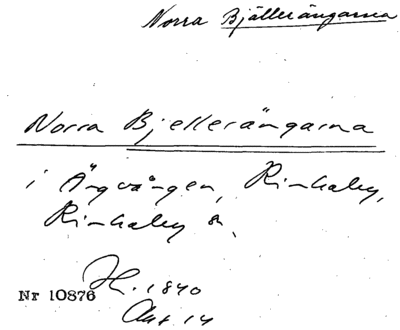 Norra Bjällerängarna
Norra Bjellerängarna
i Ängvången, Rinkaby,
Rinkaby sn.
H. 1840
Nr 10876
Akt 14